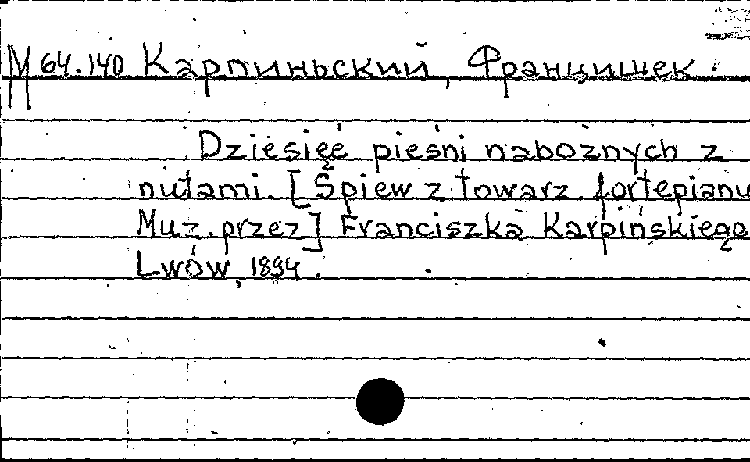 М 64.140 Карпиньский, Францишек.
Dziesięć pieśni nabożnych z
nutami. [Śpiew z towarz. fortepianu
Muz. przez] Franciszka Karpińskiego
Lwów, 1894.